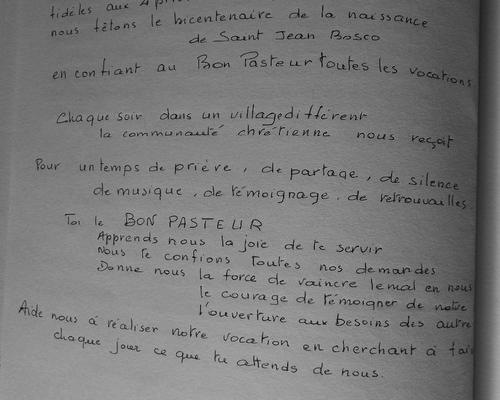 fidèles aux 4
nous fêtons le bicentenaire de la naissance
de Saint Jean Bosco
en confiant au Bon Pasteur toutes les vocations
Chaque soir dans un village différent
la communauté chrétienne nous reçoit
Pour un temps de prière, de partage, de silence
de musique, de témoignage, de retrouvailles.
Toi le BON PASTEUR
Apprends nous la joie de te servir
Nous te confions toutes nos demandes
Donne nous la force de vaincre le mal en nous
le courage de témoigner de notre
l'ouverture aux besoins des autre
Aide nous à réaliser notre vocation en cherchant à fai
chaque jour ce que tu attends de nous.